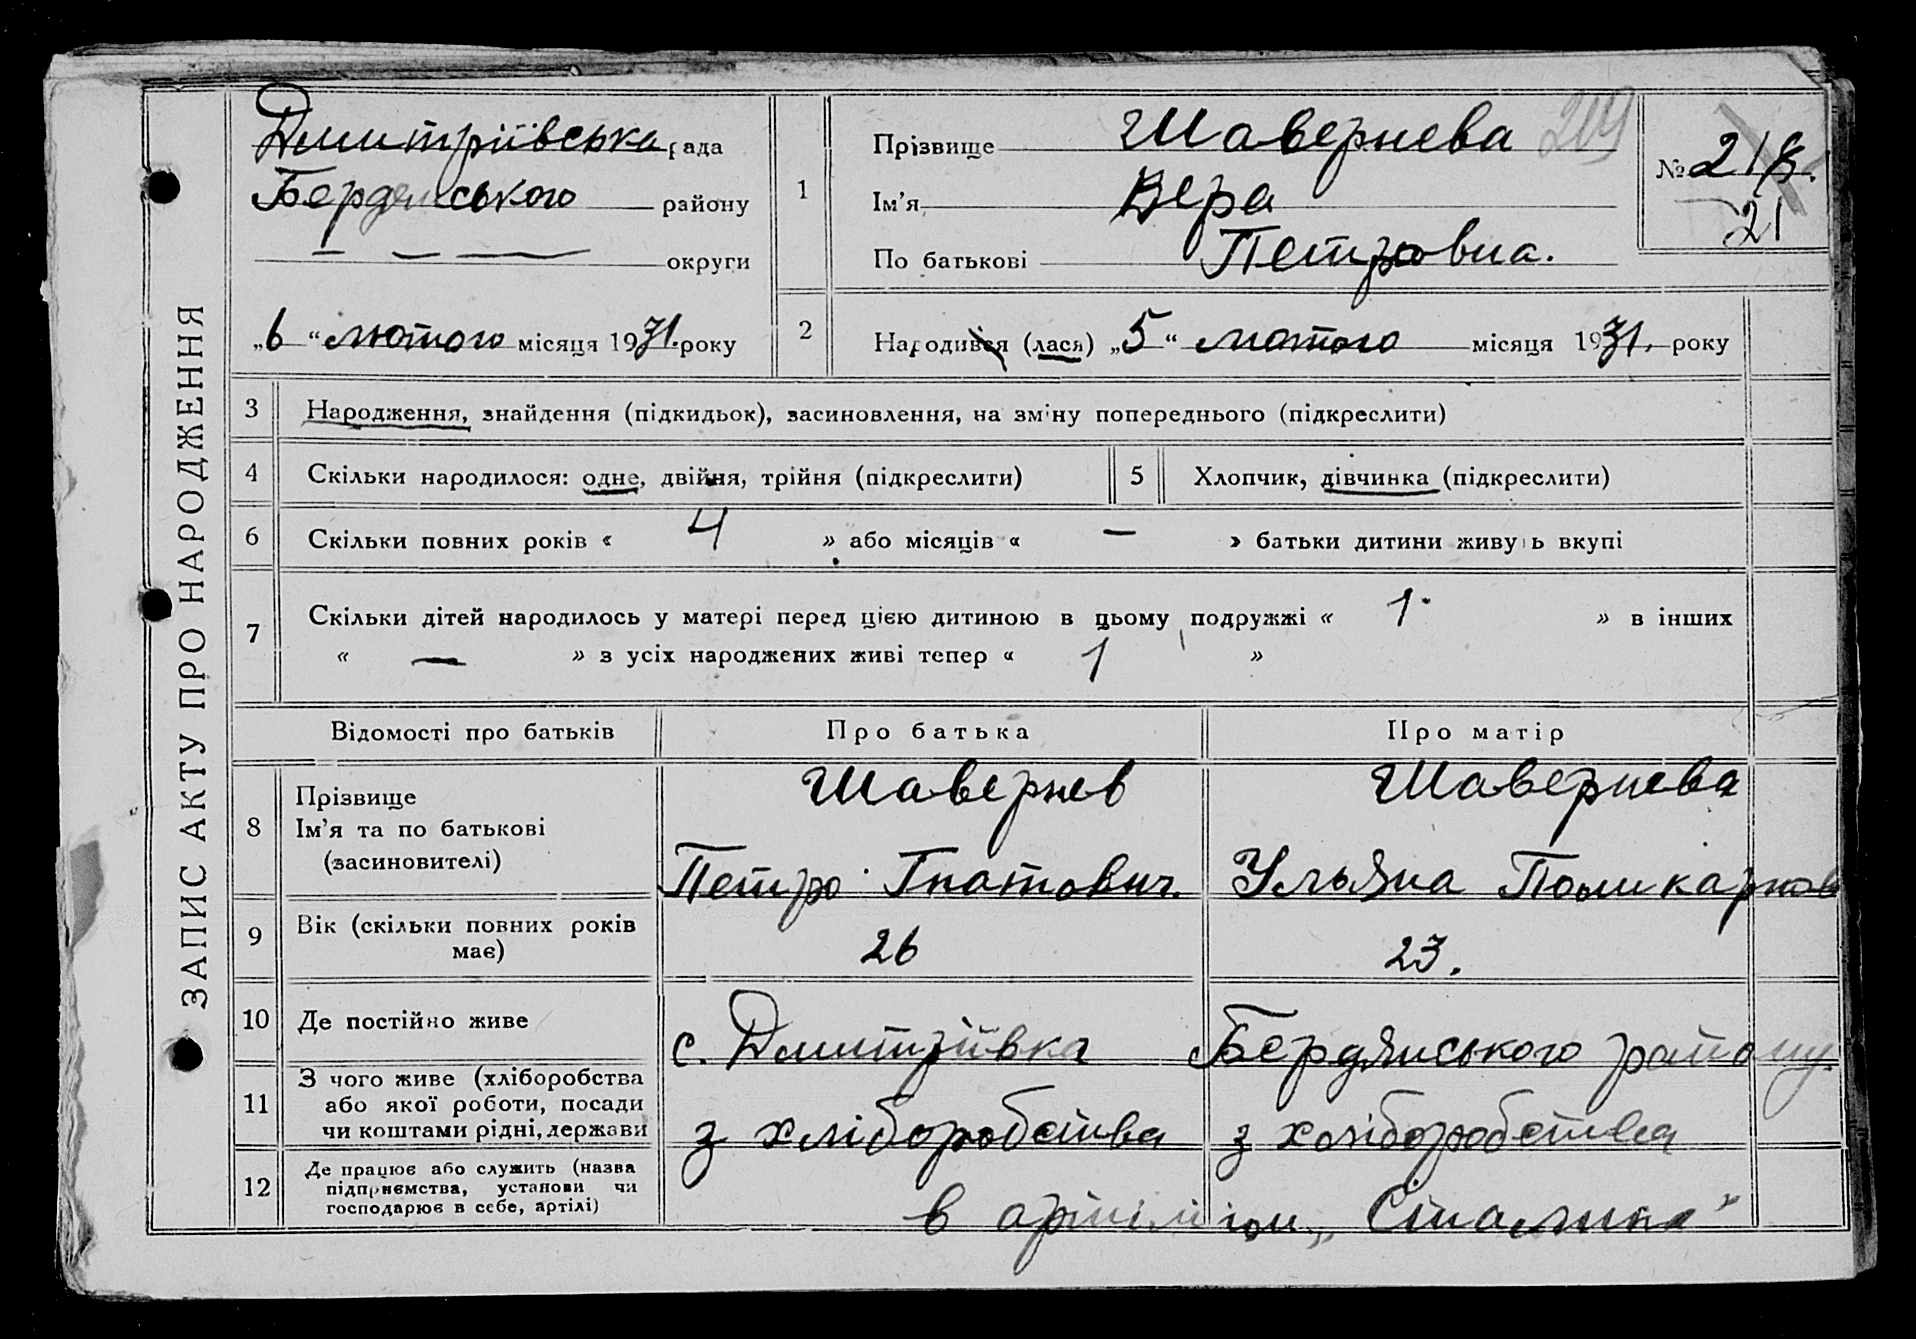 ЗАПИС АКТУ ПРО НАРОДЖЕННЯ
Дмитріївська рада
Бердянського району
— — — округи
„6“ лютого місяця 1931. року
1
Прізвище Шавернева
Ім'я Вера
По батькові Петровна.
209
№ 218.
21
2
Народився (лася) „5“ лютого місяця 1931. року
3 Народження, знайдення (підкидьок), засиновлення, на зміну попереднього (підкреслити)
4 Скільки народилося: одне, двійня, трійня (підкреслити) 5 Хлопчик, дівчинка (підкреслити)
6 Скільки повних років « 4 » або місяців « — » батьки дитини живуть вкупі
7 Скільки дітей народилось у матері перед цією дитиною в цьому подружжі « 1 » в інших
« — » з усіх народжених живі тепер « 1 »
Відомості про батьків Про батька Про матір
8 Прізвище
Ім'я та по батькові
(засиновителі)
Шавернев
Петро Гнатович.
Шавернева
Ульяна
9 Вік (скільки повних років має) 26 23.
10 Де постійно живе с. Дмитріївка Бердянського району.
11 З чого живе (хліборобства
або якої роботи, посади
чи коштами рідні, держави
з хліборобства з хліборобства
12 Де працює або служить (назва
підприємства, установи чи
господарює в себе, артілі)
в артілі ім „Сталина"